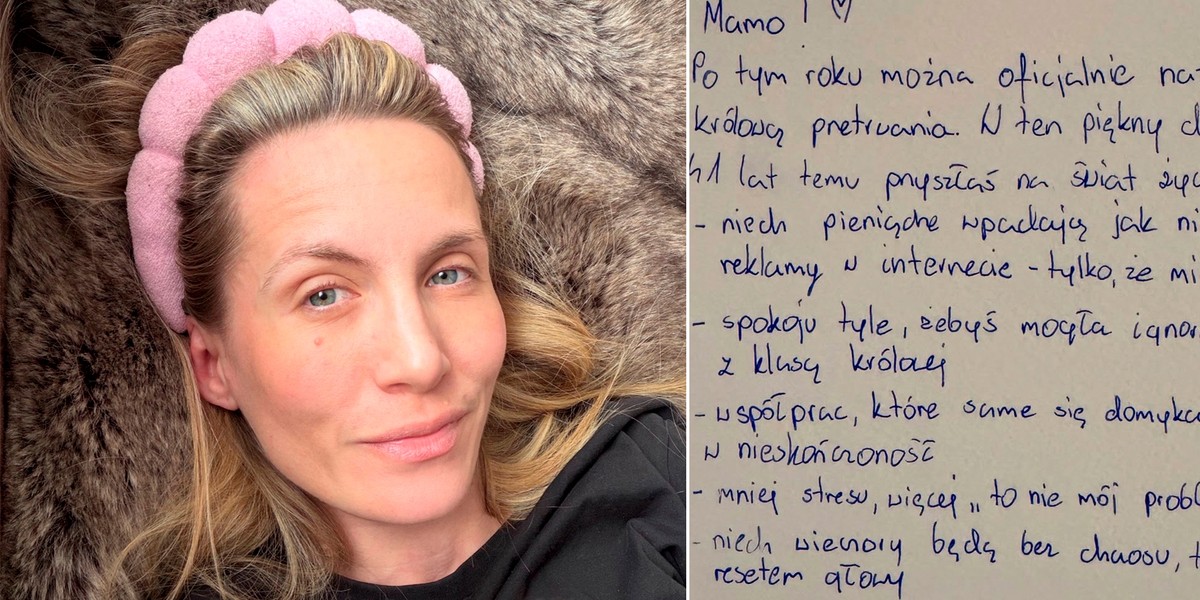 Mamo! ♡
Po tym roku można oficjalnie na
królową pretrwania. W ten piękny d
41 lat temu przyszłaś na świat życ
- niech pieniądze wpadają jak ni
reklamy w internecie - tylko, że mi
- spokoju tyle, żebyś mogła ignor
z klasą królowej
- współprac, które same się domyka
w nieskończoność
- mniej stresu, więcej „to nie mój probl
- niech wieczory będą bez chaosu, t
resetem głowy